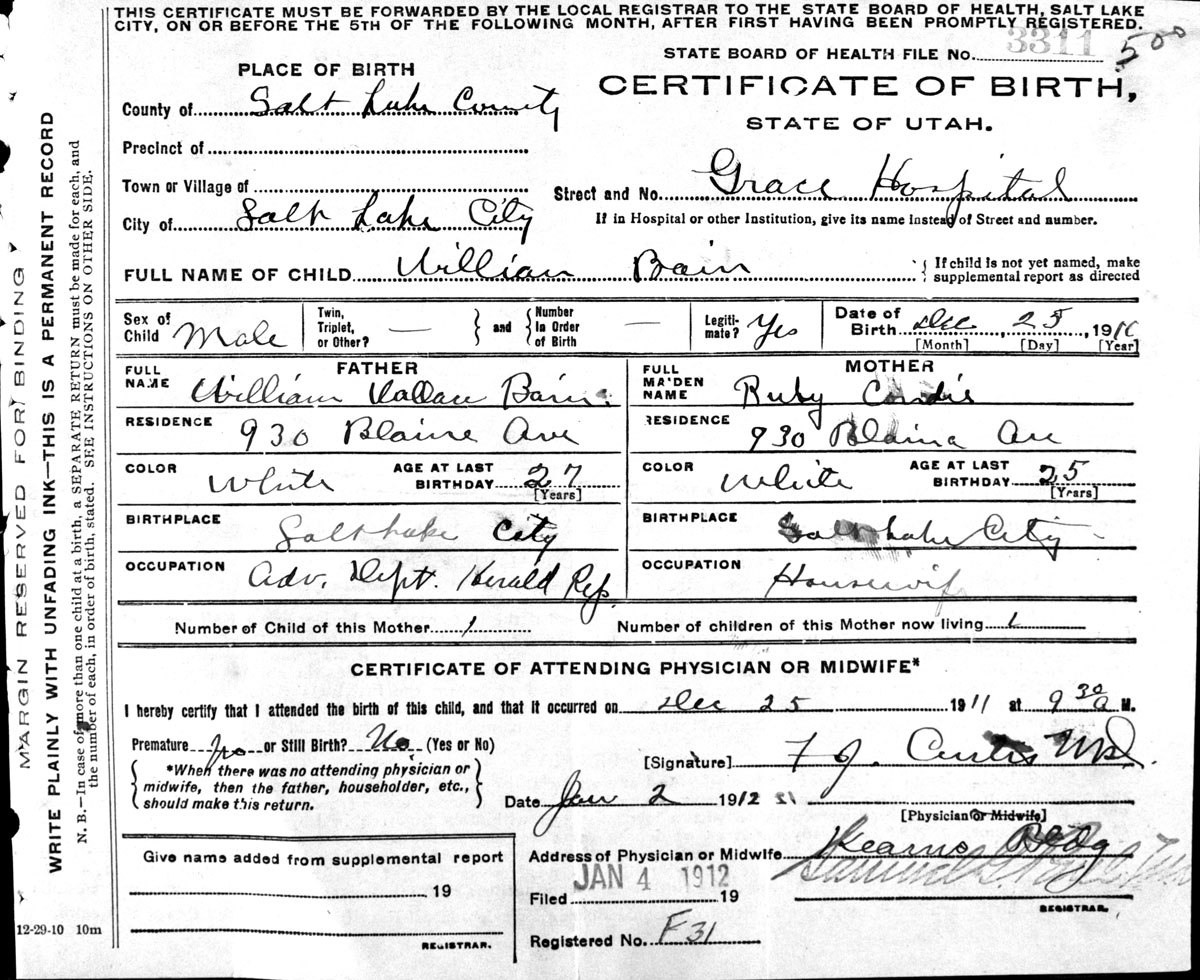 THIS CERTIFICATE MUST BE FORWARDED BY THE LOCAL REGISTRAR TO THE STATE BOARD OF HEALTH, SALT LAKE
CITY, ON OR BEFORE THE 5TH OF THE FOLLOWING MONTH, AFTER FIRST HAVING BEEN PROMPTLY REGISTERED.
STATE BOARD OF HEALTH FILE No. 3311 500
PLACE OF BIRTH
CERTIFICATE OF BIRTH,
STATE OF UTAH.
County of Salt Lake County
Precinct of
Town or Village of
Street and No. Grace Hospital
City of Salt Lake City
If in Hospital or other Institution, give its name instead of Street and number.
FULL NAME OF CHILD William Bain
{ If child is not yet named, make
supplemental report as directed
Sex of Child Male
Twin, Triplet, or Other? —
and
Number In Order of Birth —
Legitimate? Yes
Date of Birth Dec 25, 1911
[Month] [Day] [Year]
FATHER
FULL NAME William Wallace Bain
RESIDENCE 930 Blaine Ave
COLOR White AGE AT LAST BIRTHDAY 27
[Years]
BIRTHPLACE Salt Lake City
OCCUPATION Adv. Dept. Herald Rep.
MOTHER
FULL MAIDEN NAME Ruby Condie
RESIDENCE 930 Blaine Ave
COLOR White AGE AT LAST BIRTHDAY 25
[Years]
BIRTHPLACE Salt Lake City
OCCUPATION Housewife
Number of Child of this Mother 1 Number of children of this Mother now living 1
CERTIFICATE OF ATTENDING PHYSICIAN OR MIDWIFE*
I hereby certify that I attended the birth of this child, and that it occurred on Dec 25 1911 at 9 30 a M.
Premature No or Still Birth? No (Yes or No)
*When there was no attending physician or
midwife, then the father, householder, etc.,
should make this return.
[Signature] F J. Curtis M.D.
Date Jan 2 1912
[Physician or Midwife]
Address of Physician or Midwife Kearns Bldg
Give name added from supplemental report
19
REGISTRAR.
Filed JAN 4 1912 19
REGISTRAR.
Registered No. F 31
12-29-10 10m
MARGIN RESERVED FOR BINDING
WRITE PLAINLY WITH UNFADING INK—THIS IS A PERMANENT RECORD
N. B.—In case of more than one child at a birth, a SEPARATE RETURN must be made for each, and
the number of each, in order of birth, stated. SEE INSTRUCTIONS ON OTHER SIDE.